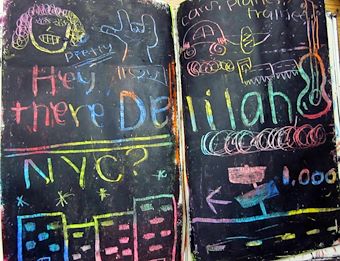 pretty
Hey,
there Delilah
NYC?
cars, planes,
1,000